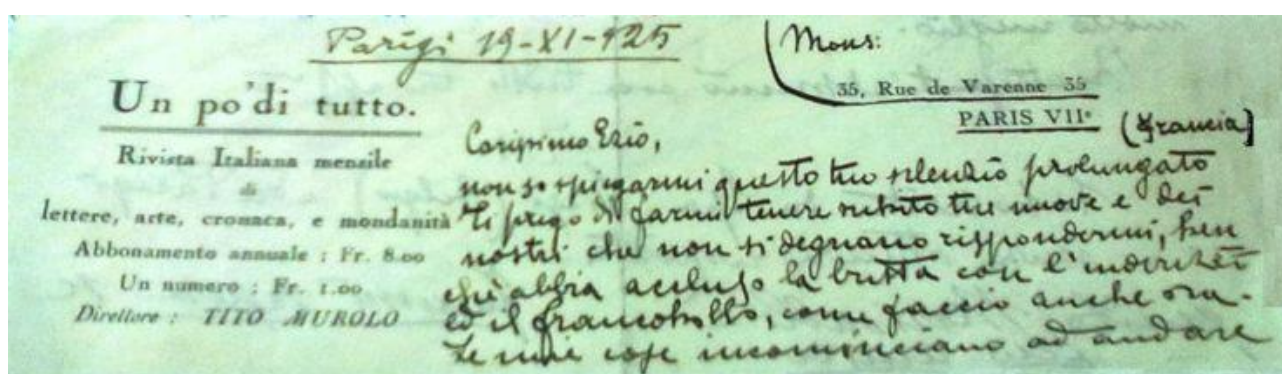 Parigi 19-XI-925
Mons:
Un po' di tutto.
Rivista Italiana mensile
di
lettere, arte, cronaca, e mondanità
Abbonamento annuale : Fr. 8.00
Un numero : Fr. 1.00
Direttore : TITO MUROLO
35, Rue de Varenne 35
PARIS VIIe (Francia)
Carissimo Ezio,
non so spiegarmi questo tuo silenzio prolungato
Ti prego di farmi tenere subito tue nuove e dei
nostri che non si degnano rispondermi, ben
chè abbia accluso la busta con l'indirizzo
ed il francobollo, come faccio anche ora.
Le mie cose incominciano ad andare